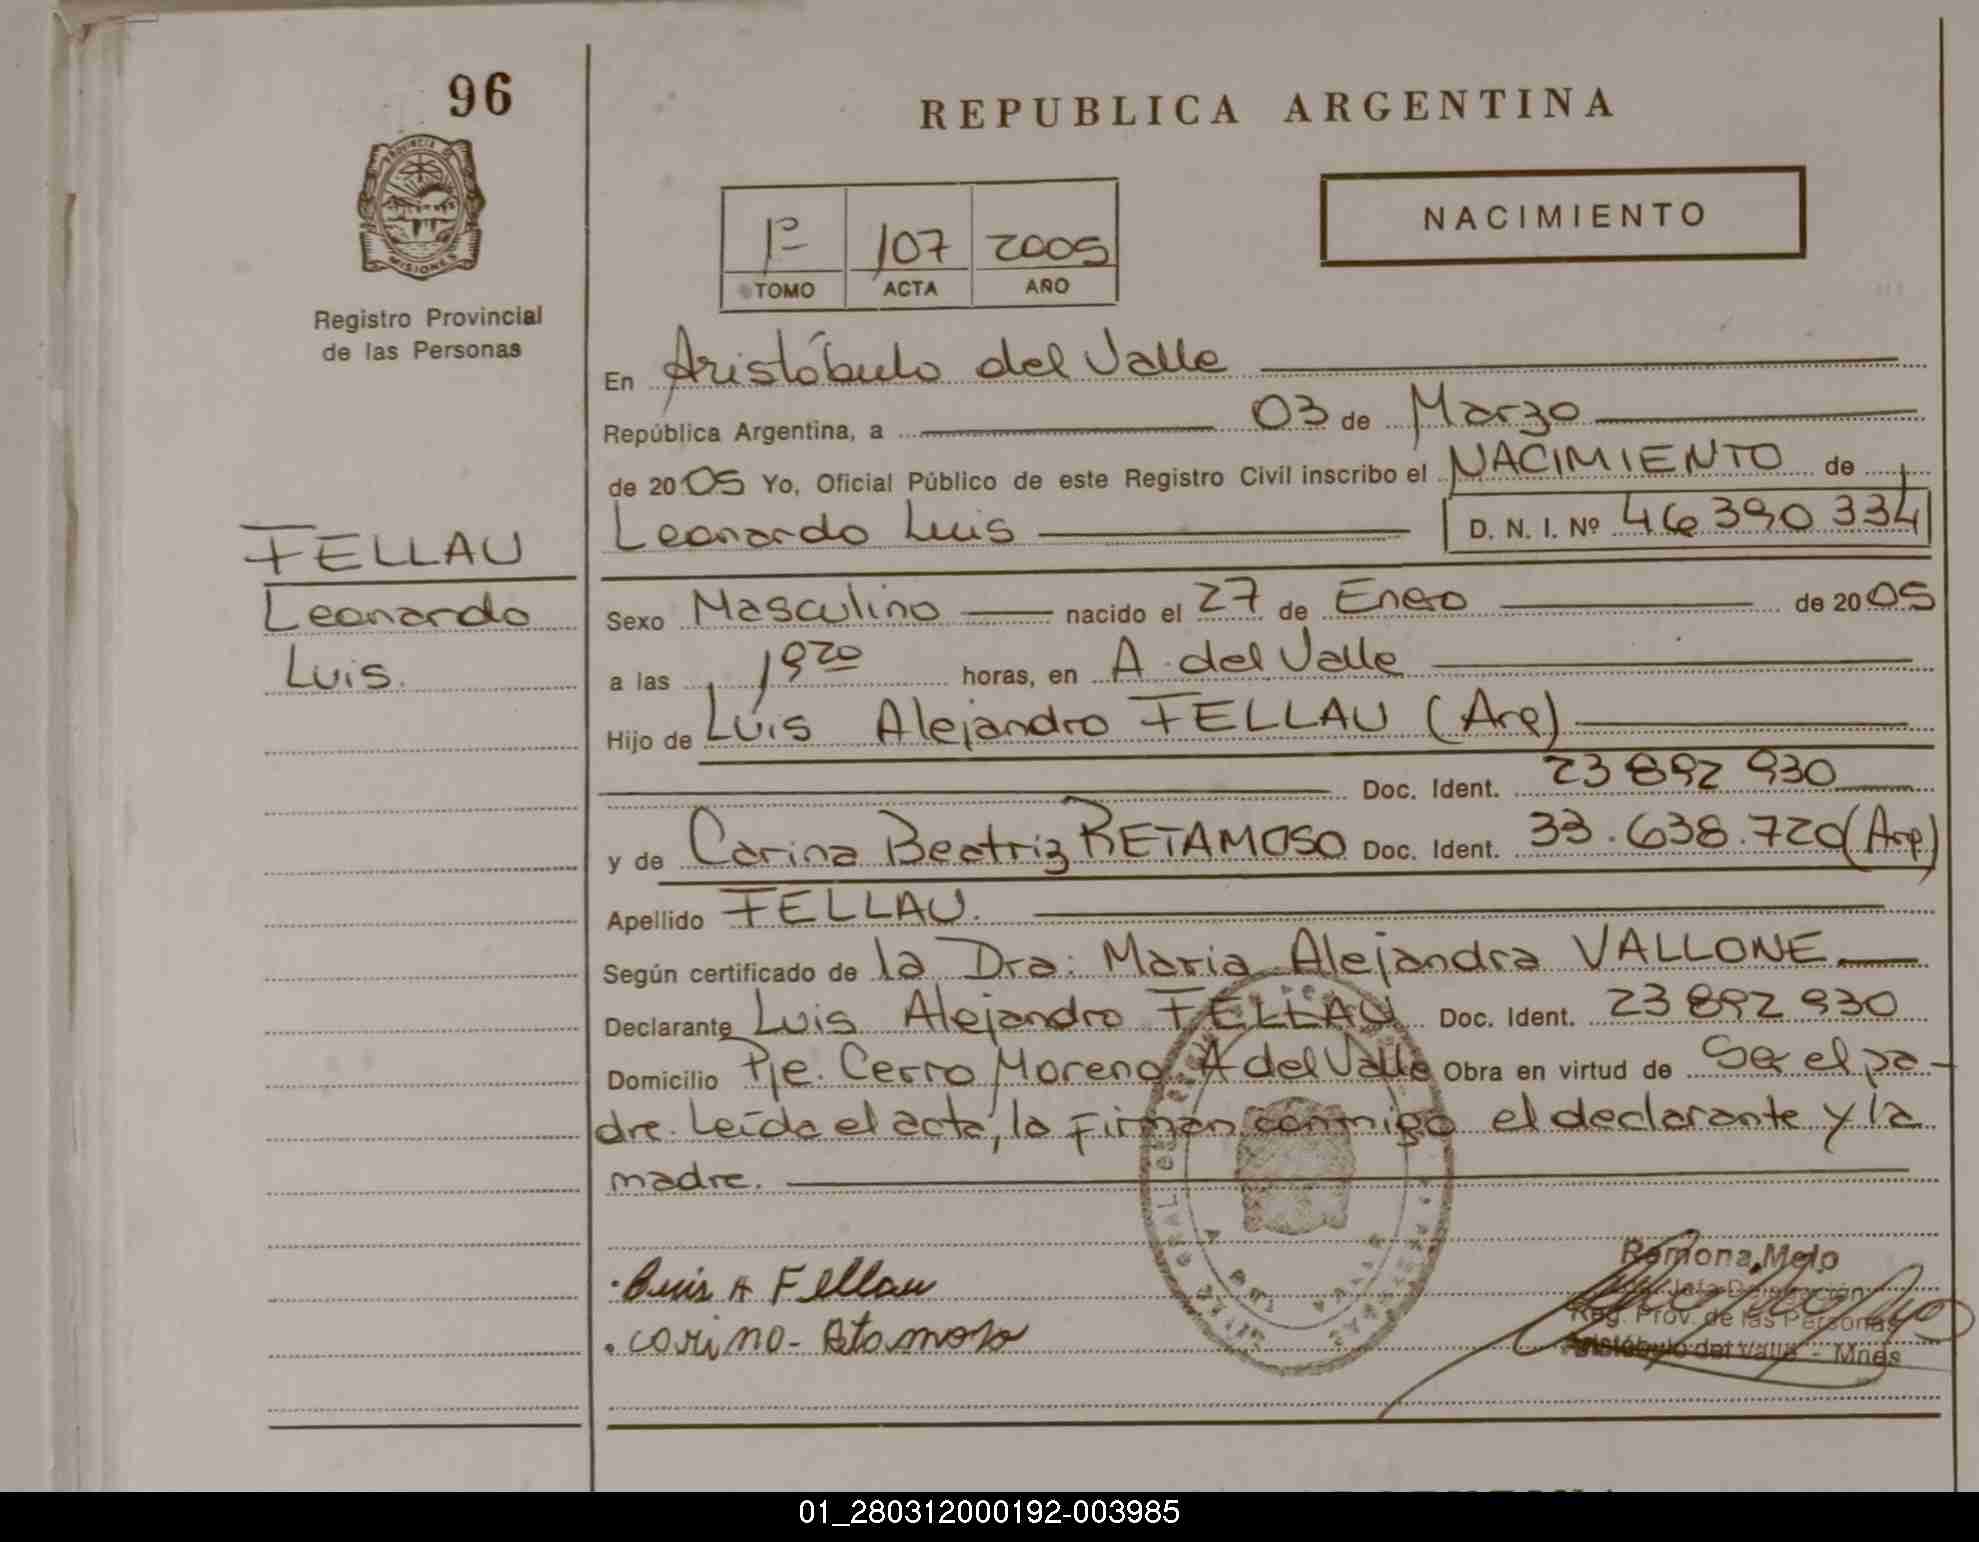 96
REPUBLICA ARGENTINA
PROVINCIA DE
MISIONES
Registro Provincial
de las Personas
NACIMIENTO
1º 107 2005
TOMO ACTA AÑO
En Aristóbulo del Valle
República Argentina, a 03 de Marzo
de 2005 Yo, Oficial Público de este Registro Civil inscribo el NACIMIENTO de
Leonardo Luis D. N. I. Nº 46 390 334
FELLAU
Leonardo
Luis.
Sexo Masculino nacido el 27 de Enero de 2005
a las 1920 horas, en A. del Valle
Hijo de Luis Alejandro FELLAU (Arg)
Doc. Ident. 23 892 930
y de Carina Beatriz RETAMOSO Doc. Ident. 33.638.720 (Arg)
Apellido FELLAU.
Según certificado de la Dra. Maria Alejandra VALLONE
Declarante Luis Alejandro FELLAU Doc. Ident. 23 892 930
Domicilio Pje. Cerro Moreno A del Valle Obra en virtud de Ser el pa-
dre. Leída el acta, la firman conmigo el declarante y la
madre.
Luis A Fellau
Carina Retamoso
Ramona Melo
Jefa Delegación
Reg. Prov. de las Personas
Aristóbulo del Valle - Mnes
01_280312000192-003985